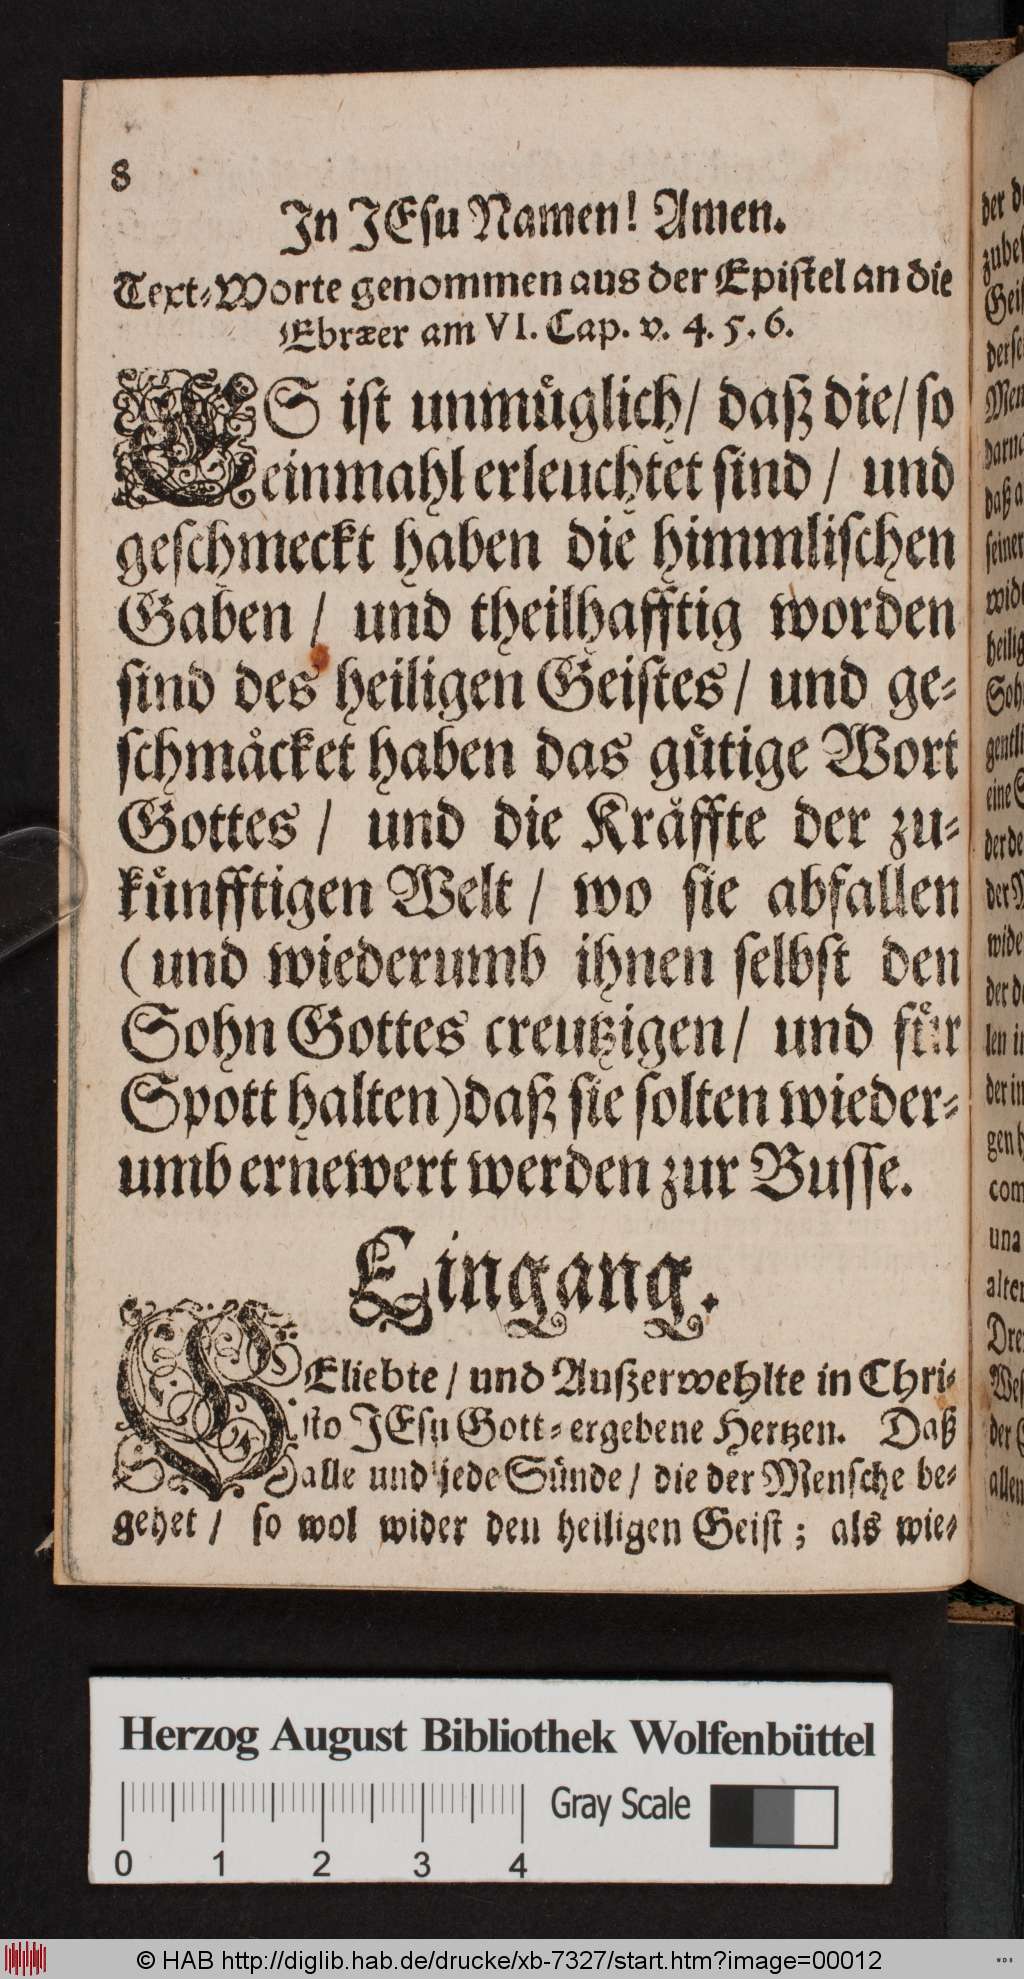 8
In JEsu Namen! Amen.
Text-Worte genommen aus der Epistel an die
Ebræer am VI. Cap. v. 4. 5. 6.
ES ist unmüglich/ daß die/ so
einmahl erleuchtet sind / und
geschmeckt haben die himmlischen
Gaben / und theilhafftig worden
sind des heiligen Geistes / und ge-
schmäcket haben das gütige Wort
Gottes / und die Kräffte der zu-
künfftigen Welt / wo sie abfallen
(und wiederumb ihnen selbst den
Sohn Gottes creutzigen / und für
Spott halten) daß sie solten wieder-
umb ernewert werden zur Busse.
Eingang.
GEliebte / und Außerwehlte in Chri-
sto JEsu Gott-ergebene Hertzen. Daß
alle und jede Sünde / die der Mensche be-
gehet / so wol wider den heiligen Geist; als wie-
Herzog August Bibliothek Wolfenbüttel
Gray Scale
0 1 2 3 4
© HAB http://diglib.hab.de/drucke/xb-7327/start.htm?image=00012